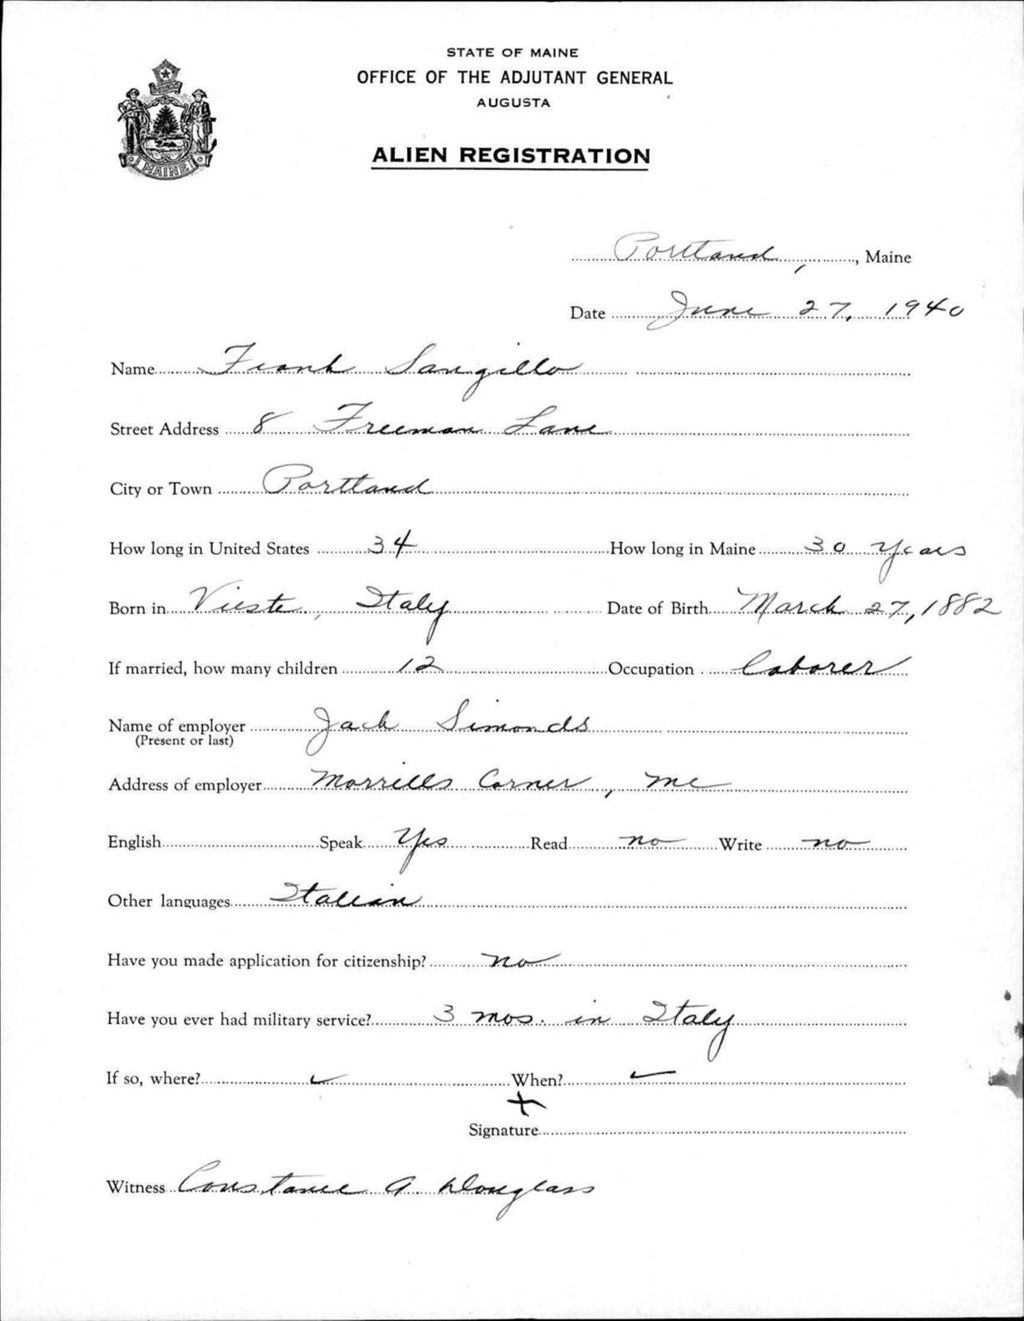 STATE OF MAINE
OFFICE OF THE ADJUTANT GENERAL
AUGUSTA
ALIEN REGISTRATION
MAINE
Portland, , Maine
Date June 27, 1940
Name Frank Sangillo
Street Address 8 Freeman Lane
City or Town Portland
How long in United States 34 How long in Maine 30 Years
Born in Vieste, Italy Date of Birth March 27, 1882
If married, how many children 12 Occupation Laborer
Name of employer Jack Simonds
(Present or last)
Address of employer Morrills Corner, Me
English Speak Yes Read no Write no
Other languages Italian
Have you made application for citizenship? no
Have you ever had military service? 3 mos. in Italy
If so, where? ✓ When? ✓
X
Signature
Witness Constance A. Douglass